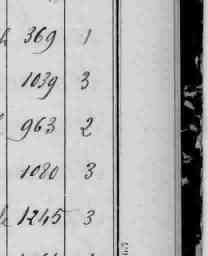 369 1
1039 3
963 2
1080 3
1245 3